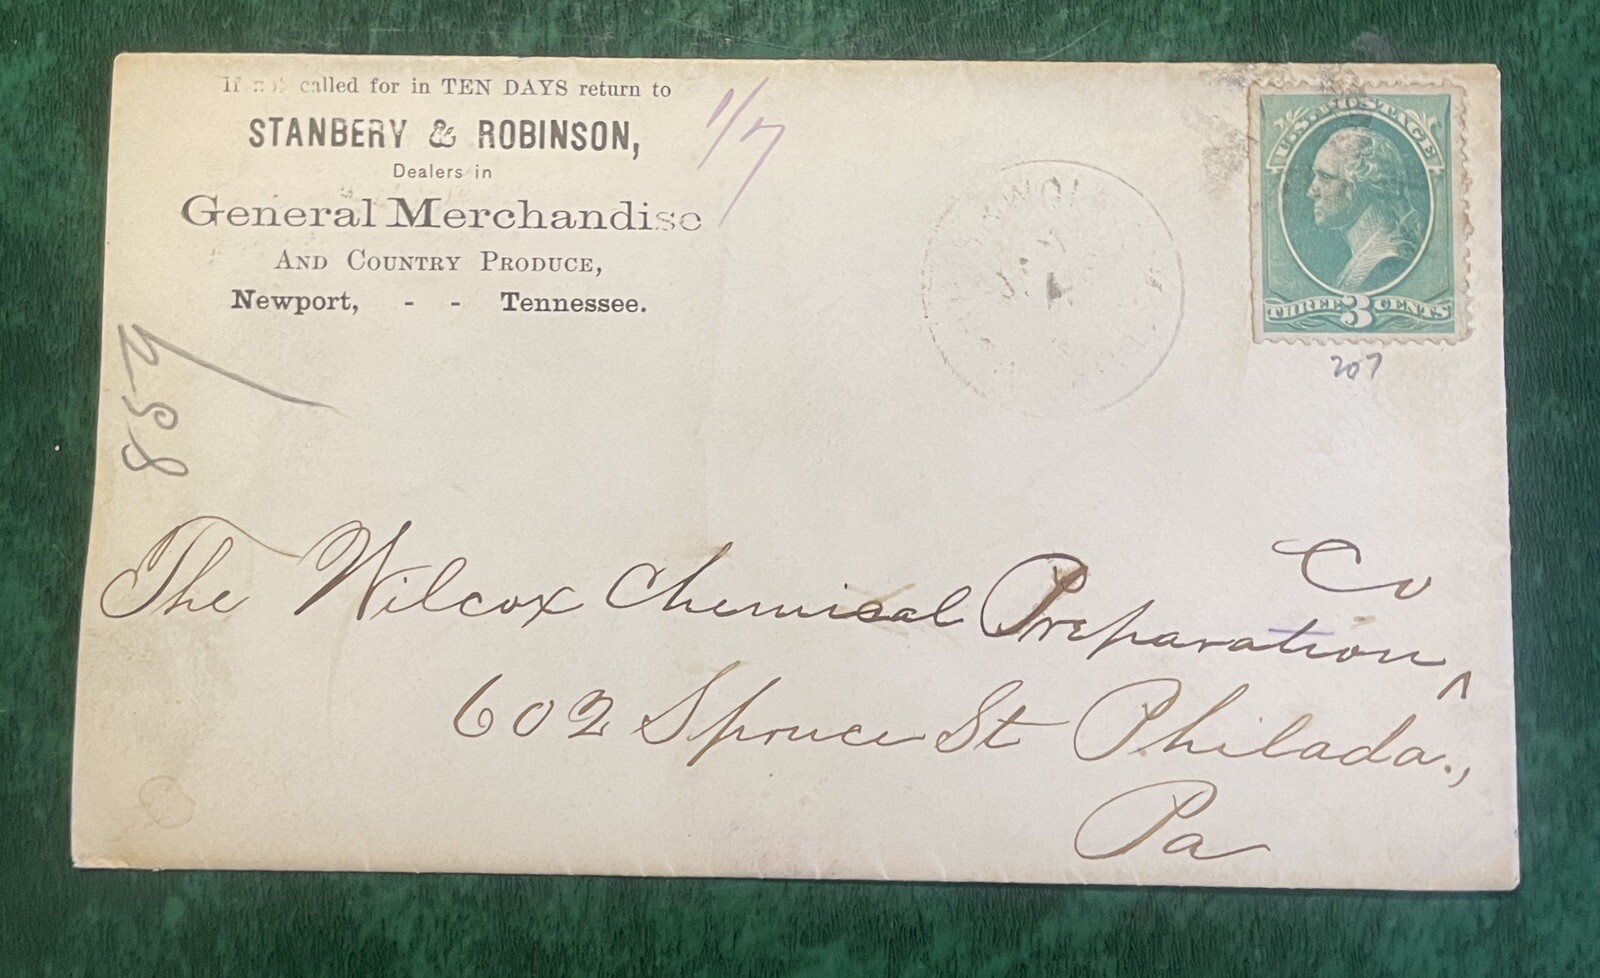 If not called for in TEN DAYS return to
STANBERY & ROBINSON,
Dealers in
General Merchandise
AND COUNTRY PRODUCE,
Newport, - - Tennessee.
1/7
U.S. POSTAGE
THREE 3 CENTS
207
859
The Wilcox Chemical Preparation ^ Co
602 Spruce St Philada.,
Pa